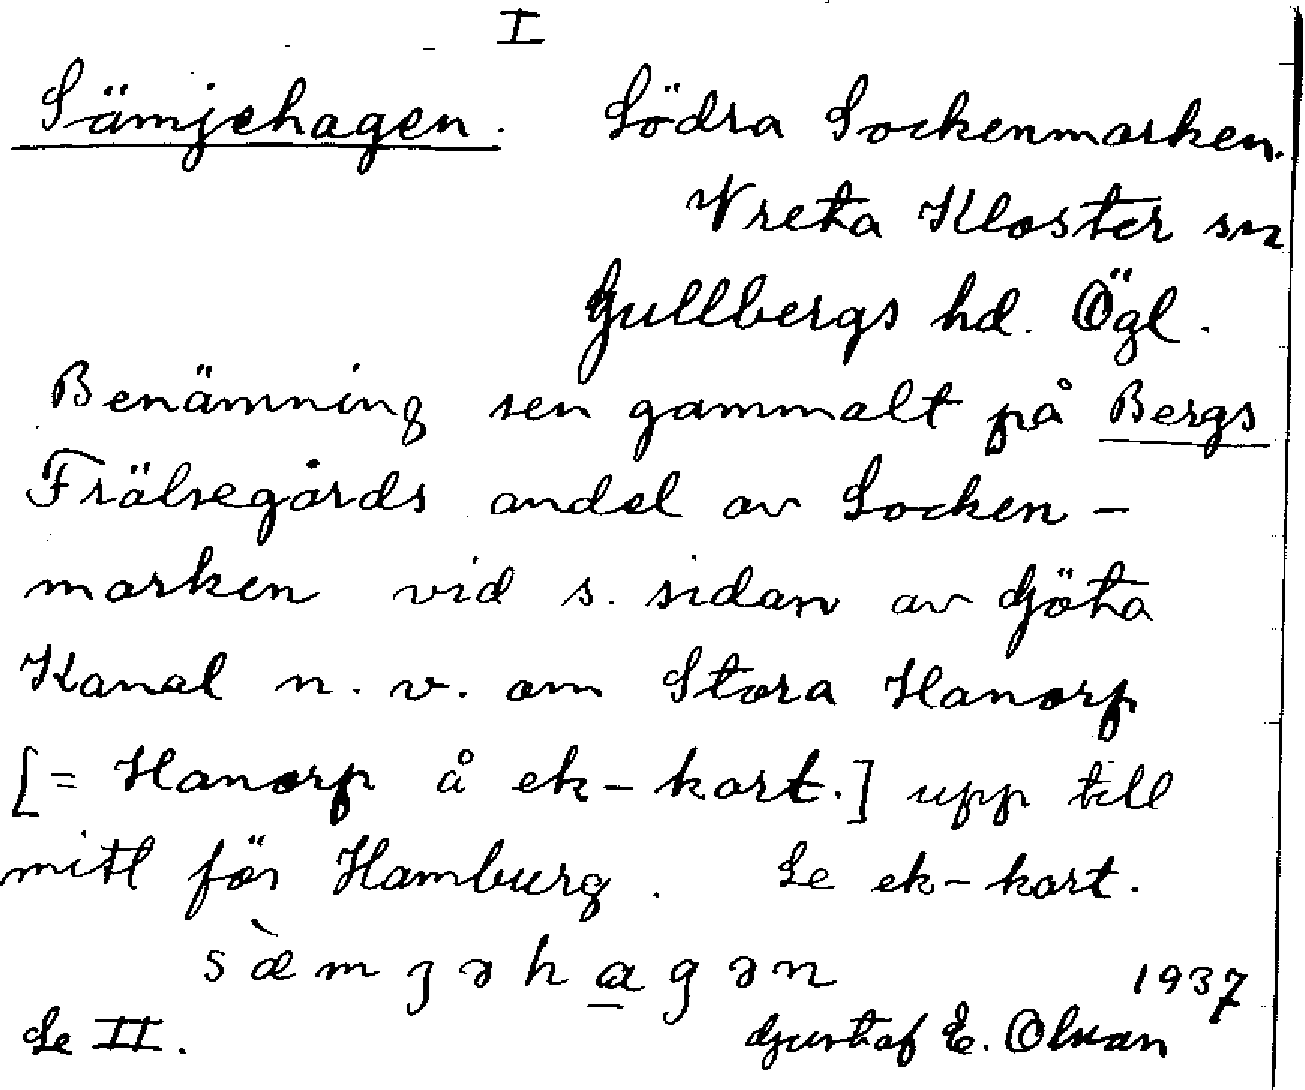 I
Sämjehagen. Södra Sockenmarken.
Vreta Kloster sn
Gullbergs hd. Ögl.
Benämning sen gammalt på Bergs
Frälsegårds andel av Socken-
marken vid s. sidan av Göta
Kanal n. v. om Stora Hanorp
[= Hanorp å ek-kart.] upp till
mitt för Hamburg. Se ek-kart.
sæ̀mjəhagən 1937
Se II. Gustaf E. Olsson